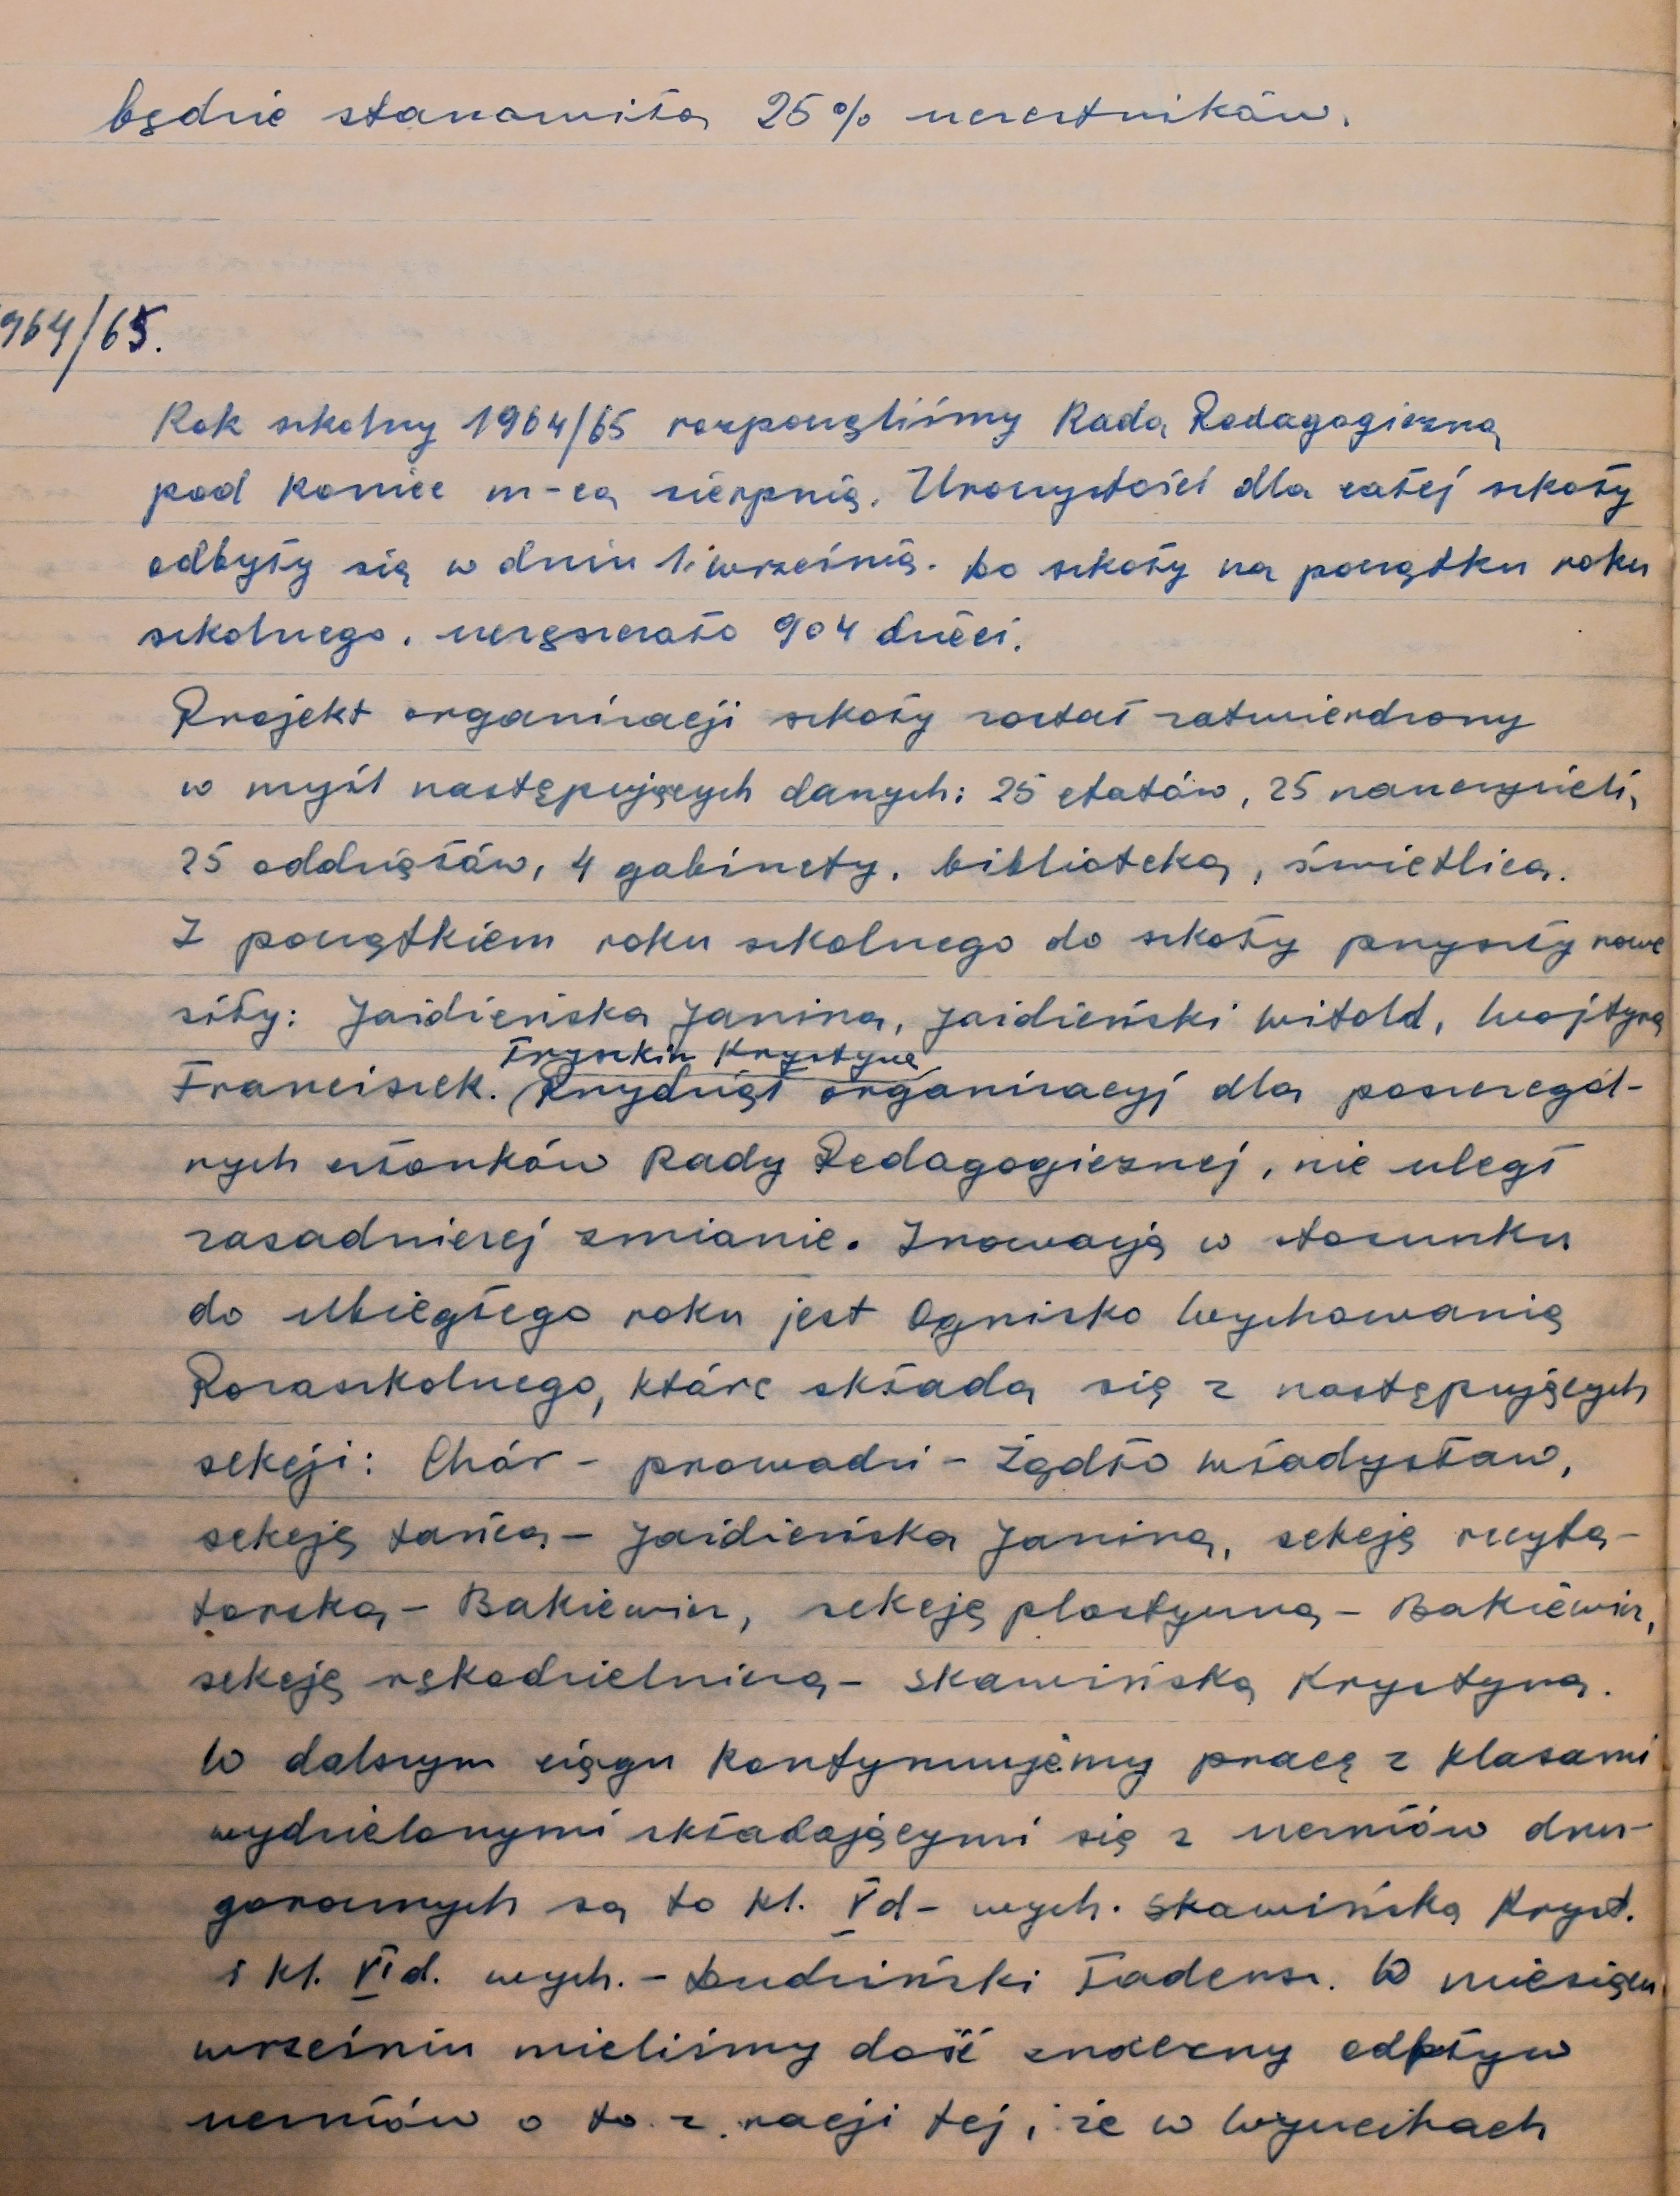 będzie stanowiła 25% uczestników.
964/65.
Rok szkolny 1964/65 rozpoczęliśmy Radą Pedagogiczną
pod koniec m-ca sierpnia. Uroczystości dla całej szkoły
odbyły się w dniu 1. września. Do szkoły na początku roku
szkolnego. uczęszczało 904 dzieci.
Projekt organizacji szkoły został zatwierdzony
w myśl następujących danych: 25 etatów, 25 nauczycieli,
25 oddziałów, 4 gabinety, biblioteka, świetlica.
Z początkiem roku szkolnego do szkoły przyszły nowe
siły: Jaidzieńska Janina, Jaidzieński Witold, Wojtyra
Tryszkin Krystyna
Franciszek. (Przydział organizacyj dla poszczegól-
nych członków Rady Pedagogicznej, nie uległ
zasadniczej zmianie. Inowacją w stosunku
do ubiegłego roku jest Ognisko Wychowania
Pozaszkolnego, które składa się z następujących
sekcji: Chór - prowadzi - Żądło Władysław,
sekcję tańca - Jaidzieńska Janina, sekcję recyta-
torską - Bakiewicz, sekcję plastyczną - Bakiewicz,
sekcję rękodzielniczą - Skawińska Krystyna.
W dalszym ciągu kontynuujemy pracę z klasami
wydzielonymi składającymi się z uczniów dru-
gorocznych są to kl. Vd - wych. Skawińska Kryst.
i kl. VId. wych. - Dudziński Tadeusz. W miesiącu
wrześniu mieliśmy dość znaczny odpływ
uczniów o to z racji tej, że w Wyczechach